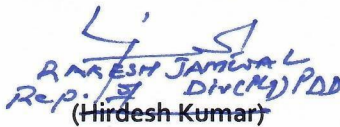 RAKESH JAMWAL
Rep. of Div(Plg) PDD
(Hirdesh Kumar)